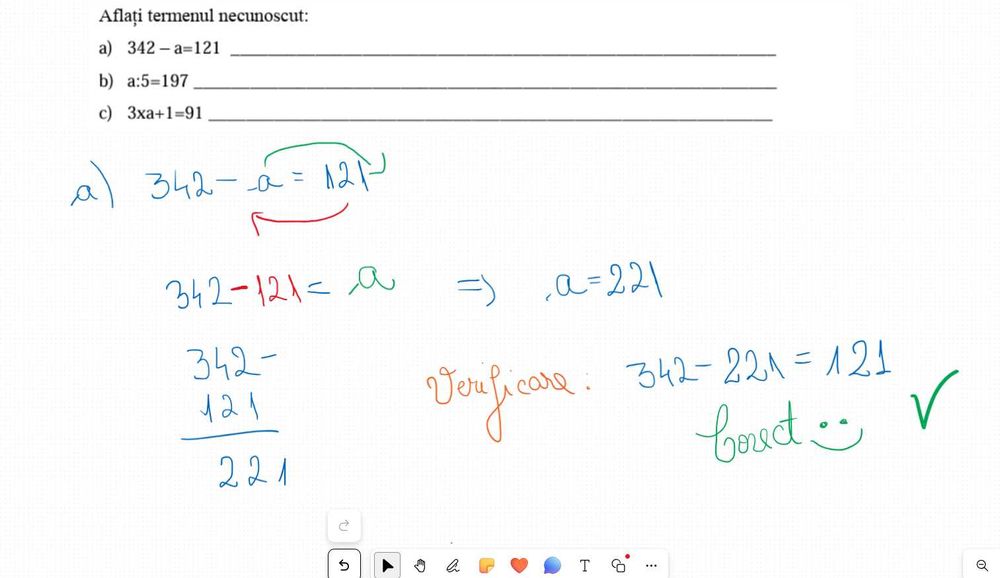 Aflați termenul necunoscut:
a) 342 – a=121
b) a:5=197
c) 3xa+1=91
a) 342 - a = 121
342 - 121 = a ⇒ a = 221
342 -
121
221
Verificare: 342 - 221 = 121
Corect
T